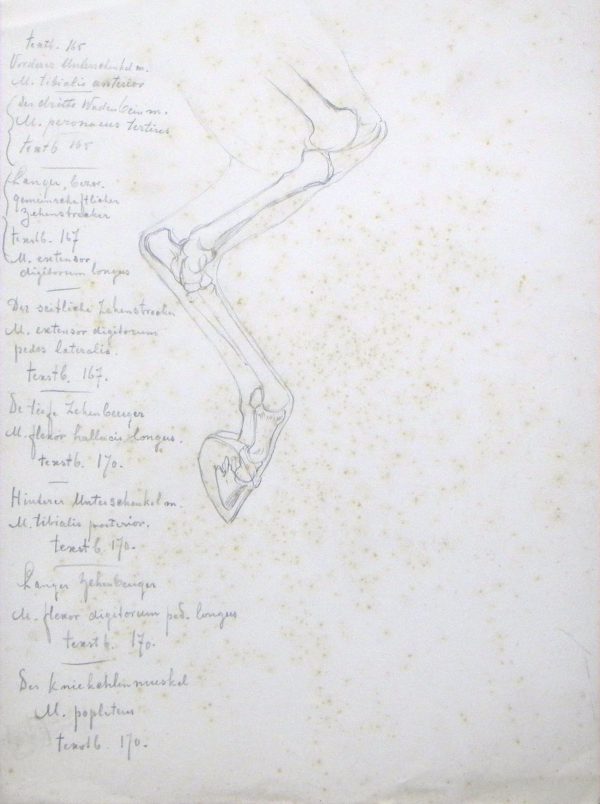 textb. 165
Vorderer Unterschenkel m.
M. tibialis anterior
Der dritte Wadenbein m.
M. peronaeus tertius
textb 165
Langer, bezw.
gemeinschaftlicher
Zehenstrecker
textb. 167
M. extensor
digitorum longus
Der seitliche Zehenstrecker
M. extensor digitorum
pedis lateralis.
textb. 167.
De tiefe Zehenbeuger
M. flexor hallucis longus.
textb. 170.
Hinderer Unterschenkel m.
M. tibialis posterior.
textb. 170.
Langer Zehenbeuger
M. flexor digitorum ped. longus
textb. 170.
Der Kniekehlenmuskel
M. popliteus
textb. 170.